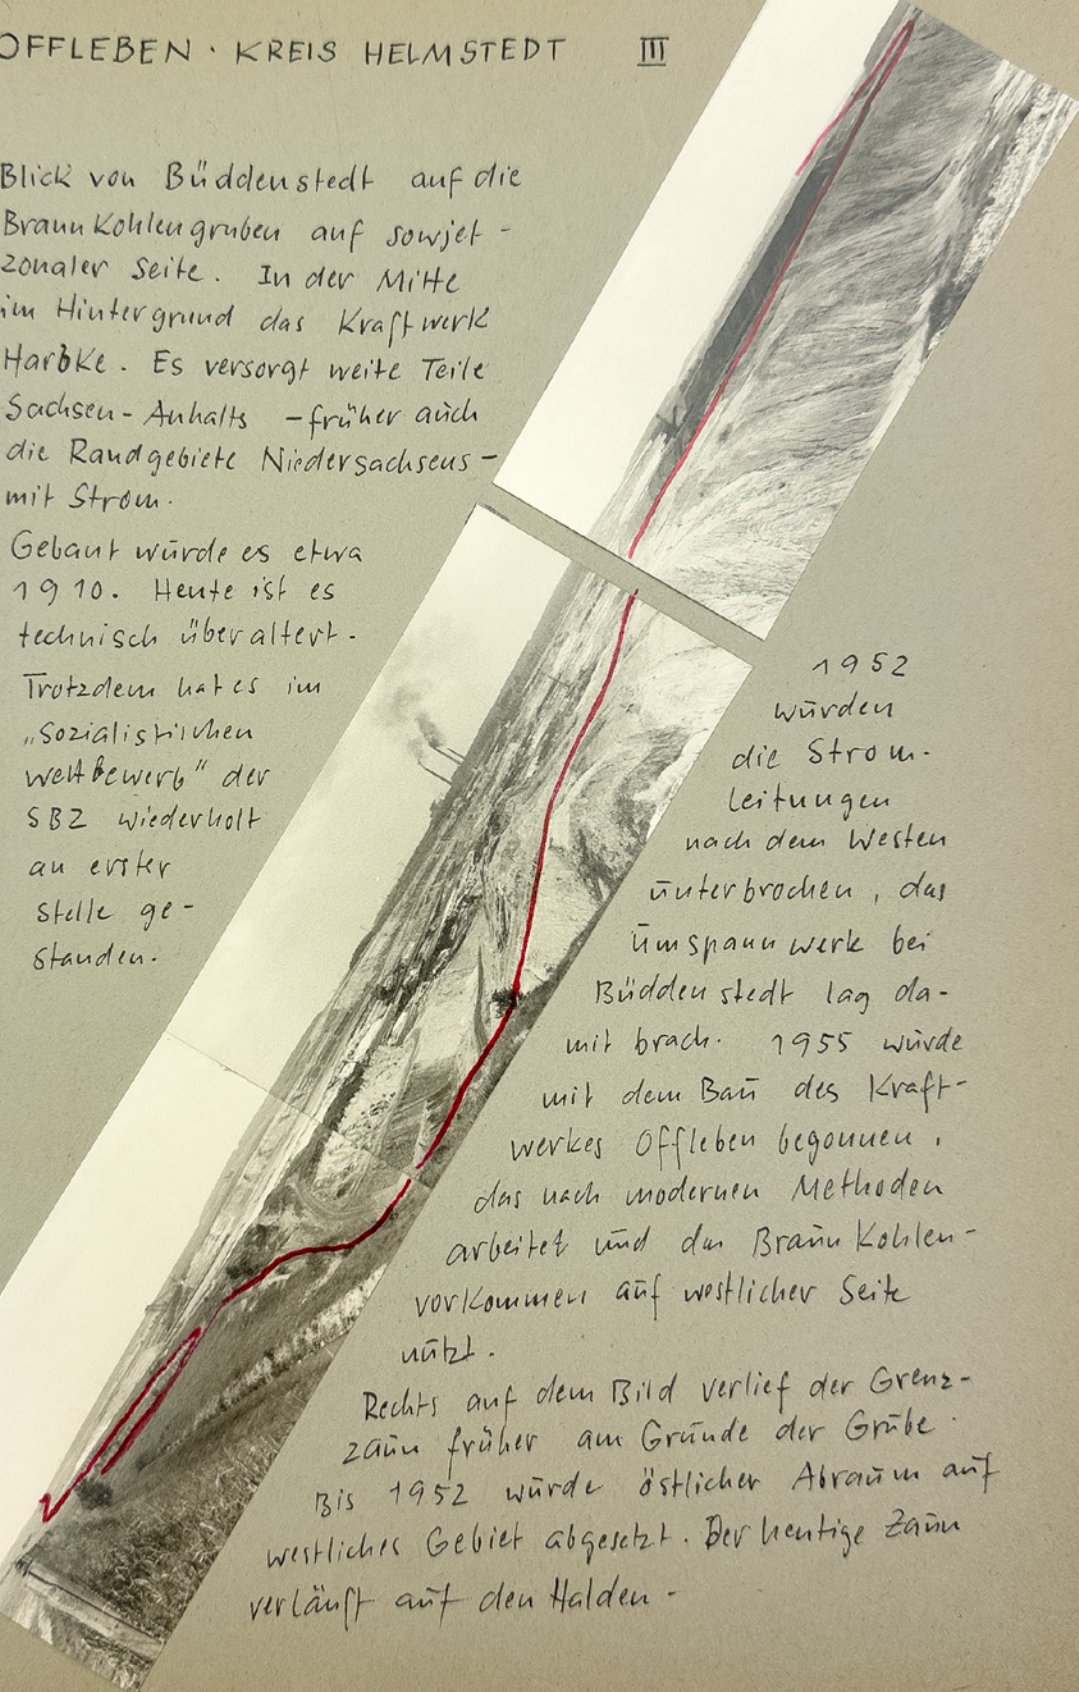 OFFLEBEN · KREIS HELMSTEDT III
Blick von Büddenstedt auf die
Braunkohlengruben auf sowjet-
zonaler Seite. In der Mitte
im Hintergrund das Kraftwerk
Harbke. Es versorgt weite Teile
Sachsen-Anhalts - früher auch
die Randgebiete Niedersachsens -
mit Strom.
Gebaut wurde es etwa
1910. Heute ist es
technisch überaltert.
Trotzdem hat es im
„Sozialistischen
Wettbewerb" der
SBZ wiederholt
an erster
Stelle ge-
standen.
1952
wurden
die Strom-
leitungen
nach dem Westen
unterbrochen, das
Umspannwerk bei
Büddenstedt lag da-
mit brach. 1955 wurde
mit dem Bau des Kraft-
werkes Offleben begonnen,
das nach modernen Methoden
arbeitet und das Braunkohlen-
vorkommen auf westlicher Seite
nützt.
Rechts auf dem Bild verlief der Grenz-
zaun früher am Grunde der Grube.
Bis 1952 wurde östlicher Abraum auf
westliches Gebiet abgesetzt. Der heutige Zaun
verläuft auf den Halden.